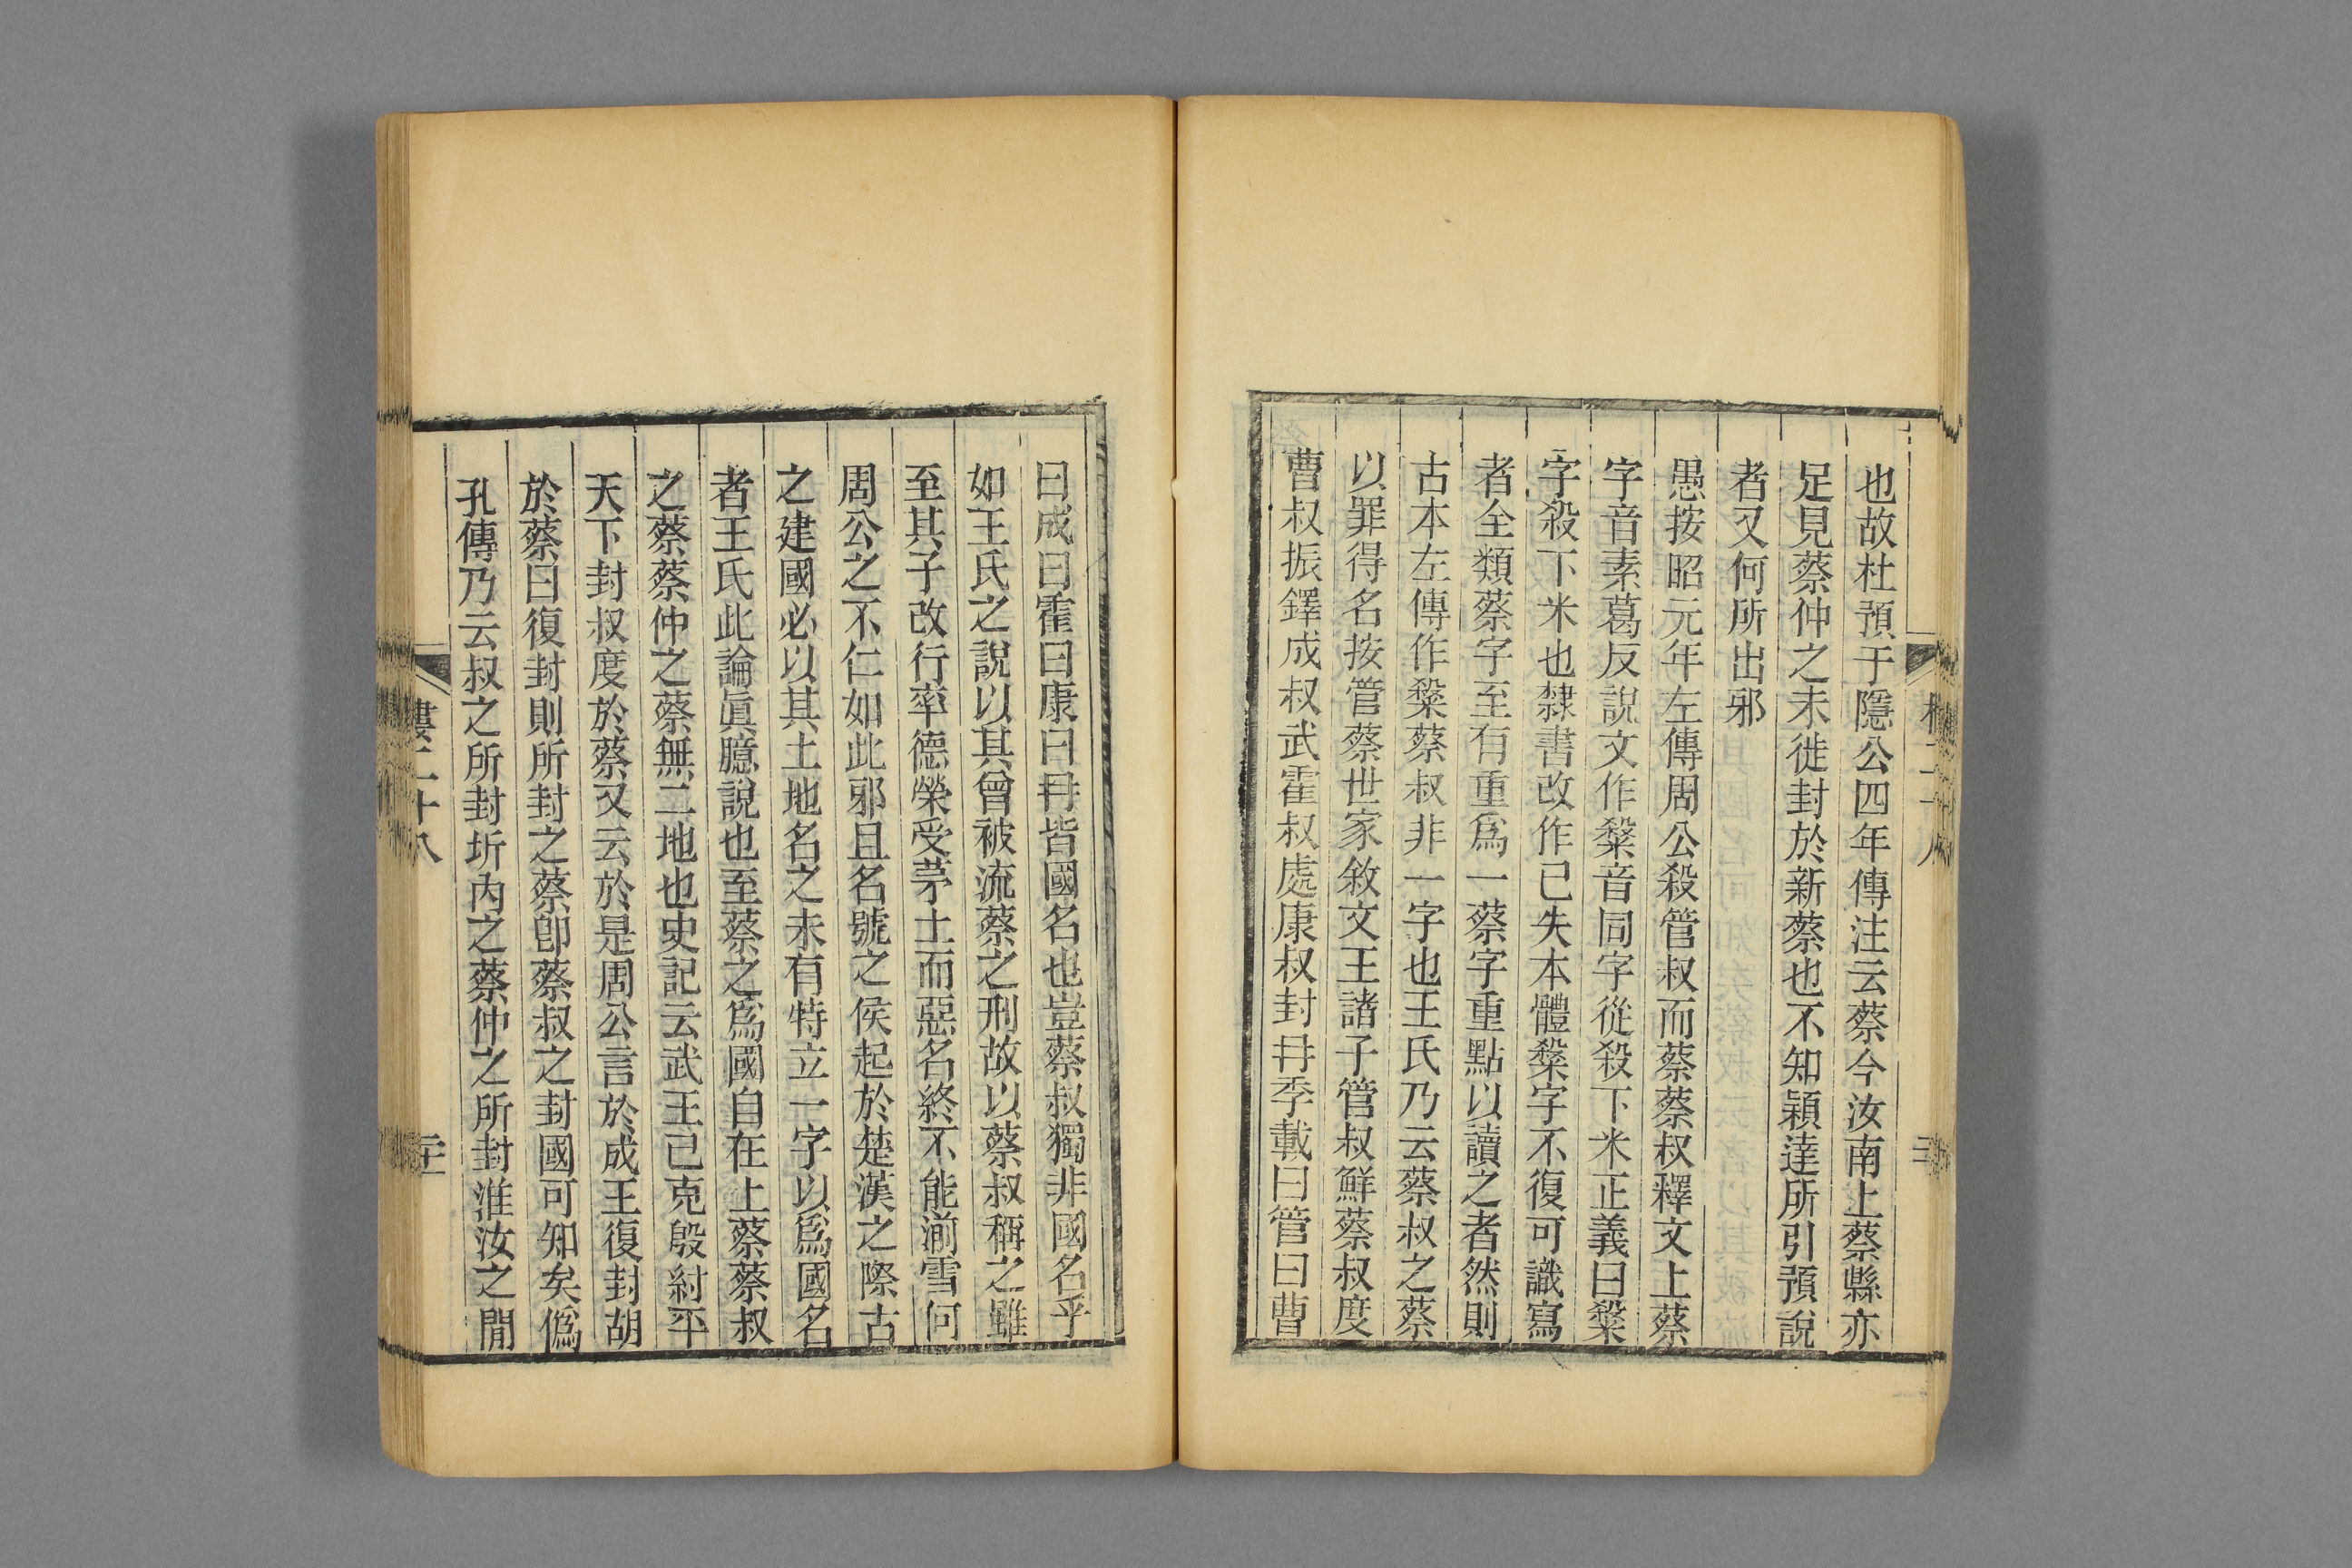 也故杜預于隱公四年傳注云蔡今汝南上蔡縣亦
足見蔡仲之未徙封於新蔡也不知穎達所引預說
者又何所出邪
愚按昭元年左傳周公殺管叔而蔡蔡叔釋文上蔡
字音素葛反說文作䊛音同字從殺下米正義曰䊛
字殺下米也隸書改作已失本體䊛字不復可識寫
者全類蔡字至有重爲一蔡字重點以讀之者然則
古本左傳作䊛蔡叔非一字也王氏乃云蔡叔之蔡
以罪得名按管蔡世家敘文王諸子管叔鮮蔡叔度
曹叔振鐸成叔武霍叔處康叔封冄季載曰管曰曹
曰成曰霍曰康曰冄皆國名也豈蔡叔獨非國名乎
如王氏之說以其曾被流蔡之刑故以蔡叔稱之雖
至其子改行率德榮受茅土而惡名終不能湔雪何
周公之不仁如此邪且名號之侯起於楚漢之際古
之建國必以其土地名之未有特立一字以爲國名
者王氏此論眞臆說也至蔡之爲國自在上蔡蔡叔
之蔡蔡仲之蔡無二地也史記云武王已克殷紂平
天下封叔度於蔡又云於是周公言於成王復封胡
於蔡曰復封則所封之蔡卽蔡叔之封國可知矣僞
孔傳乃云叔之所封圻內之蔡仲之所封淮汝之閒
二十八